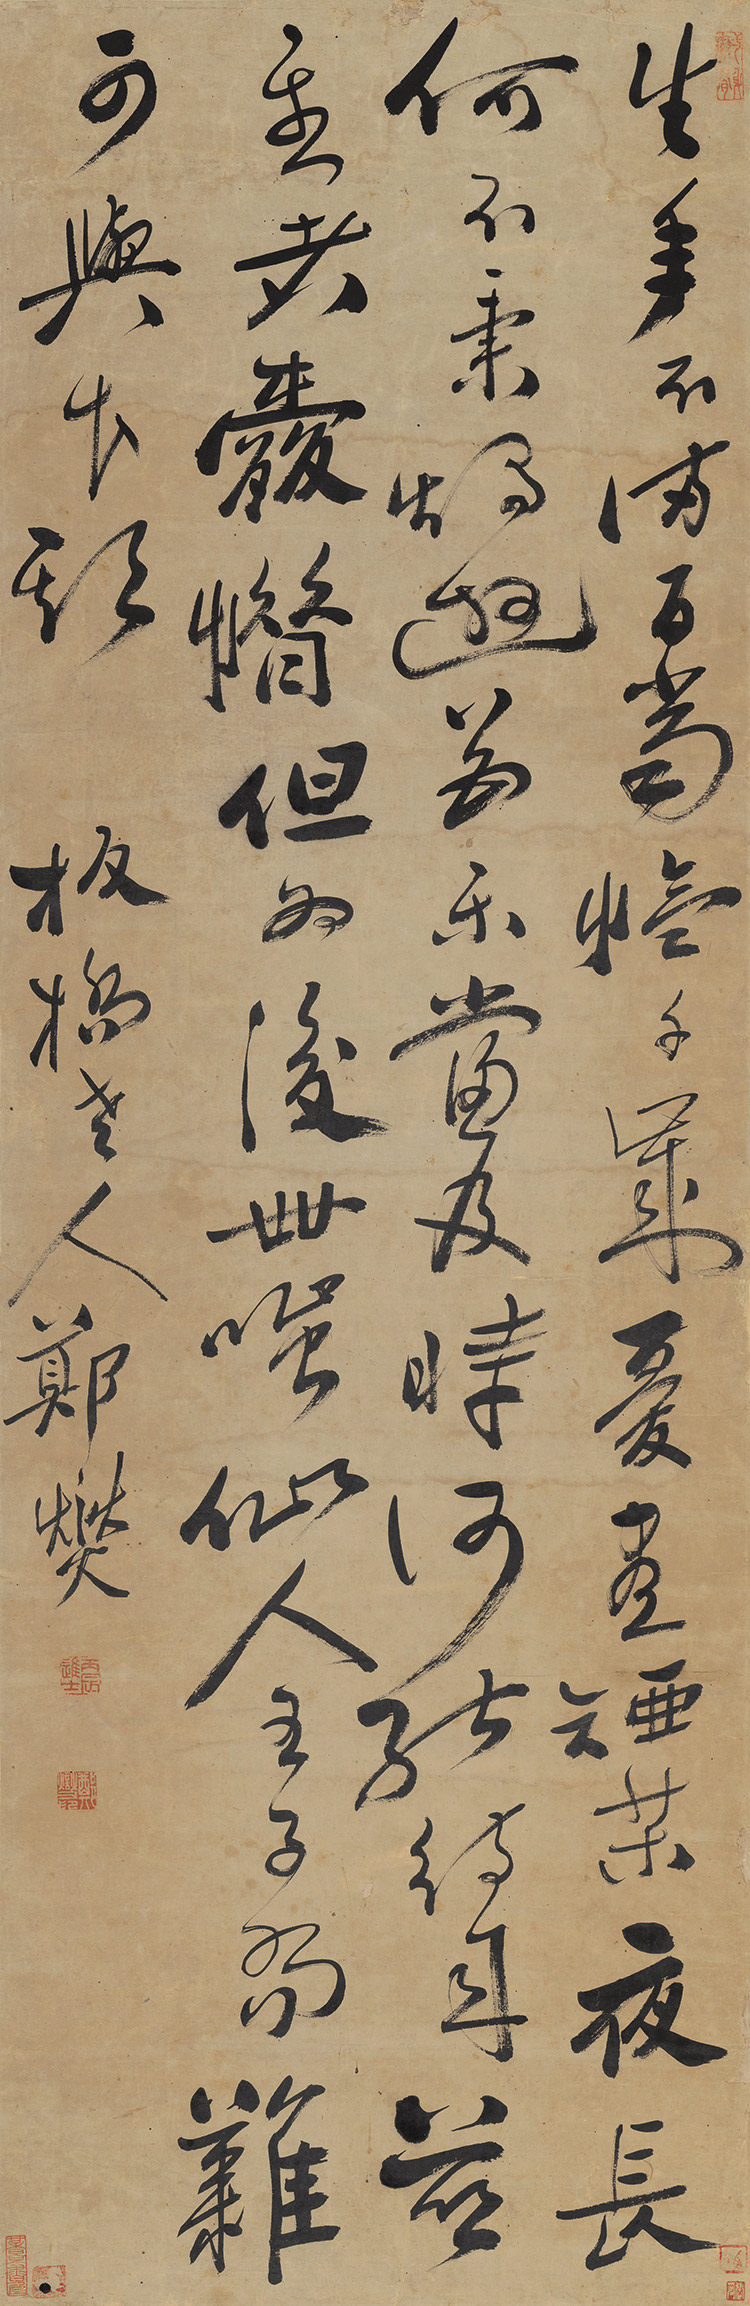 生年不滿百常懷千歲憂晝短苦夜長
何不秉燭遊為樂當及時何能待來茲
愚者愛惜但為後世嗤仙人王子喬難
可與等期
板橋老人鄭燮
丙辰進士